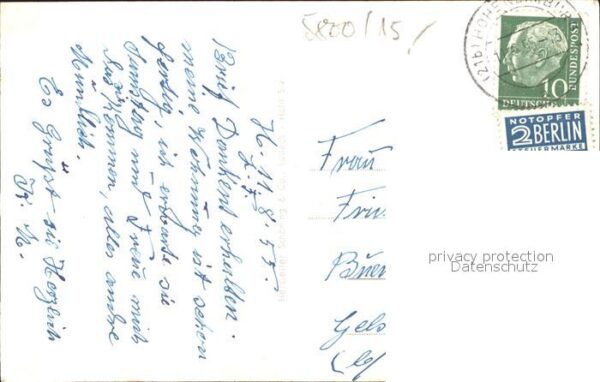 5800/15
(21b) HOHENLIMBURG
10
DEUTSCHE
BUNDESPOST
NOTOPFER
2 BERLIN
STEUERMARKE
H. 11. 8. 55.
Brief Dankend erhalten.
meine Wohnung ist schon
fertig, ich erwarte sie
Samstag und Freue mich
aufs Kommen, alles andre
Mündlich.
Es Grüßt sie Herzlich
Fr. K.
Frau
Frie
Buer
Gels
privacy protection
Datenschutz